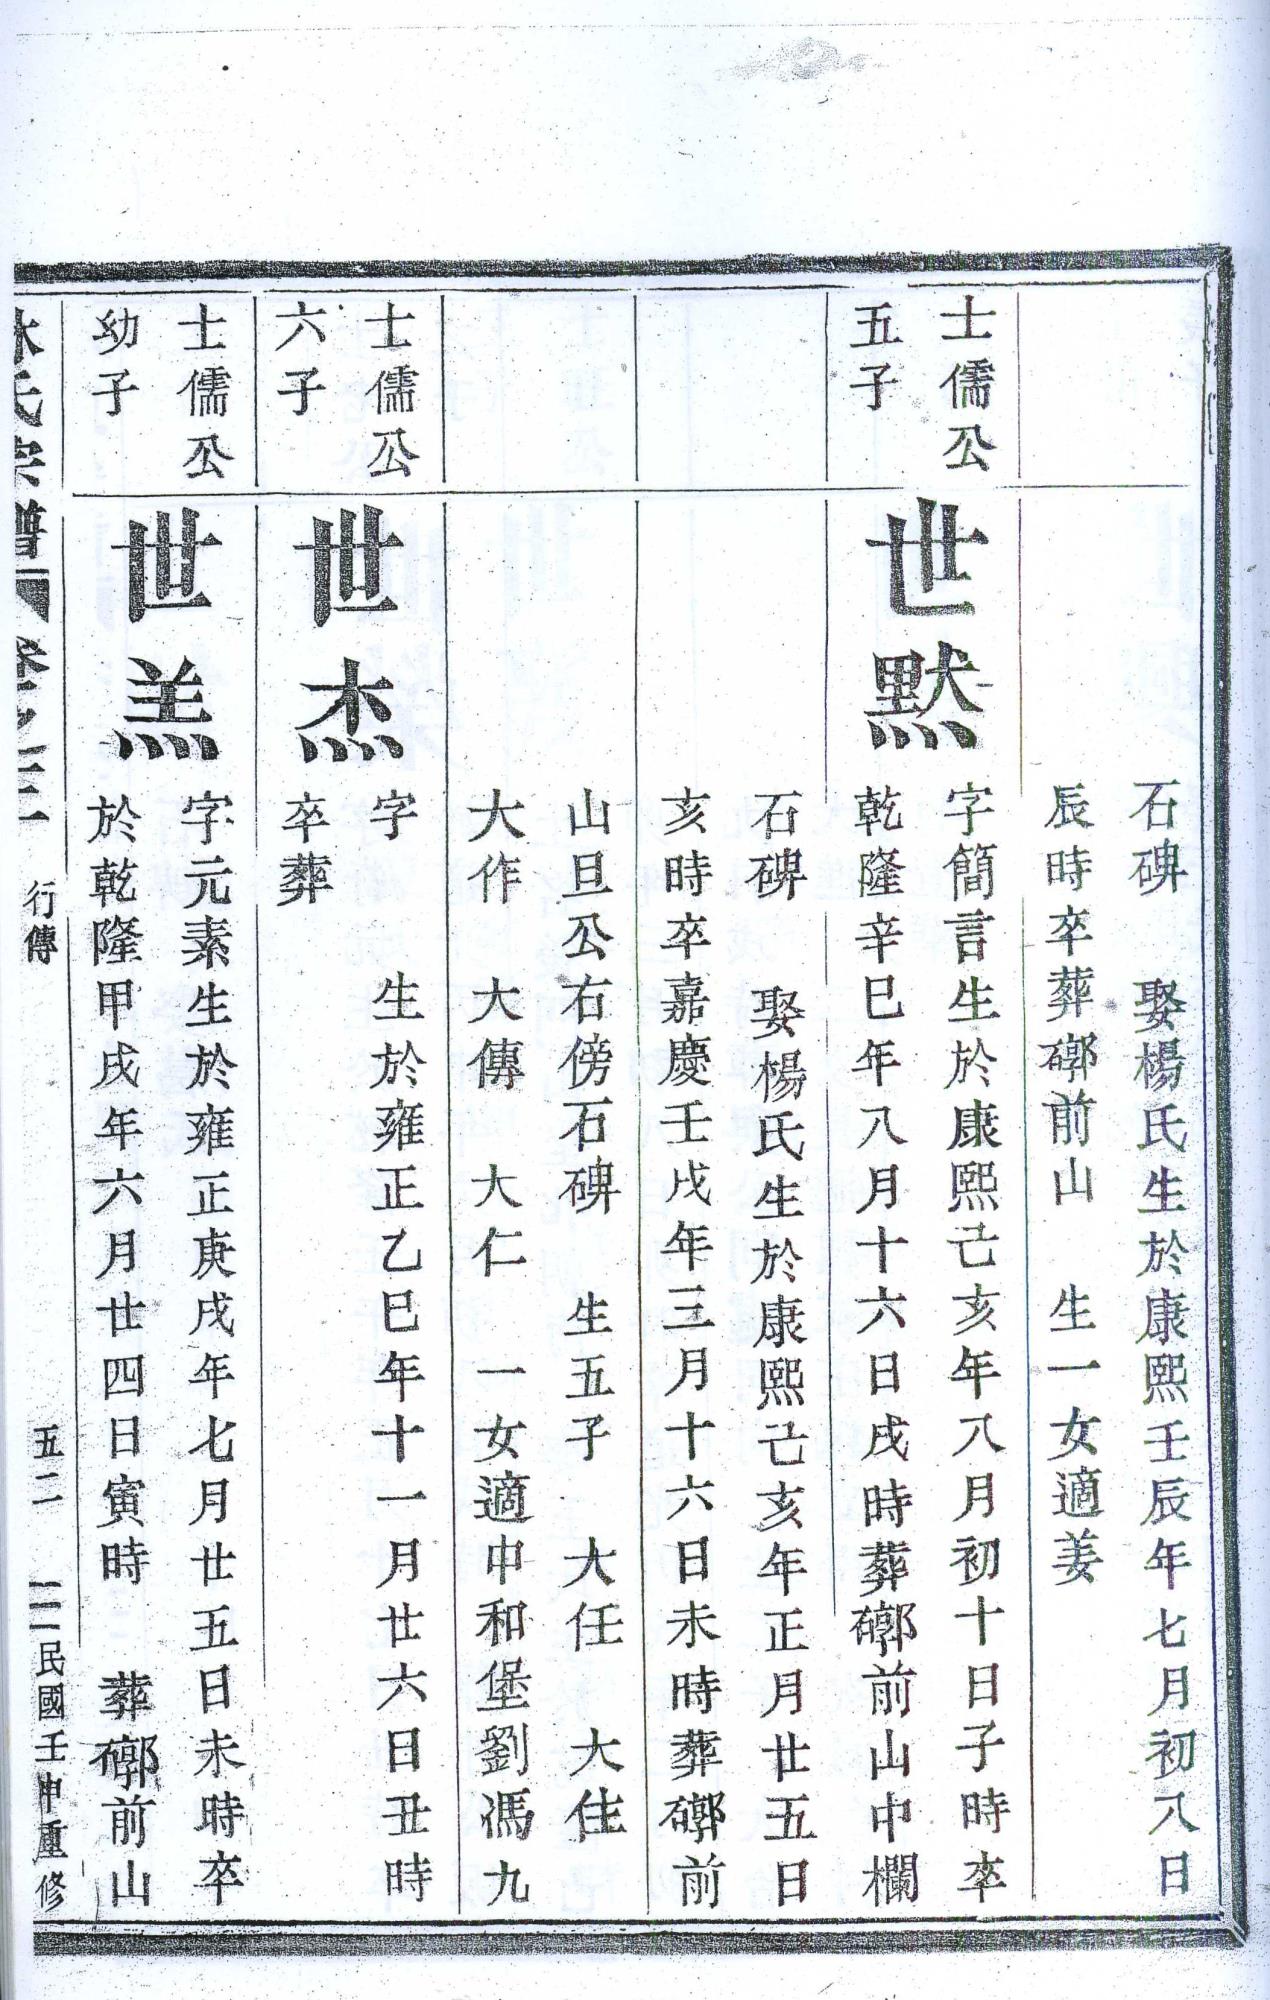 石碑　娶楊氏生於康熙壬辰年七月初八日
辰時卒葬𥕢前山　生一女適姜
士儒公
五子
世默
字簡言生於康熙己亥年八月初十日子時卒
乾隆辛巳年八月十六日戌時葬𥕢前山中欄
石碑　娶楊氏生於康熙己亥年正月廿五日
亥時卒嘉慶壬戌年三月十六日未時葬𥕢前
山旦公右傍石碑　生五子　大任　大住
大作　大傳　大仁　一女適中和堡劉馮九
士儒公
六子
世杰
字　　生於雍正乙巳年十一月廿六日丑時
卒葬
士儒公
幼子
世羔
字元素生於雍正庚戌年七月廿五日未時卒
於乾隆甲戌年六月廿四日寅時　葬𥕢前山
林氏宗譜　卷之三　行傳　五二　民國壬申重修